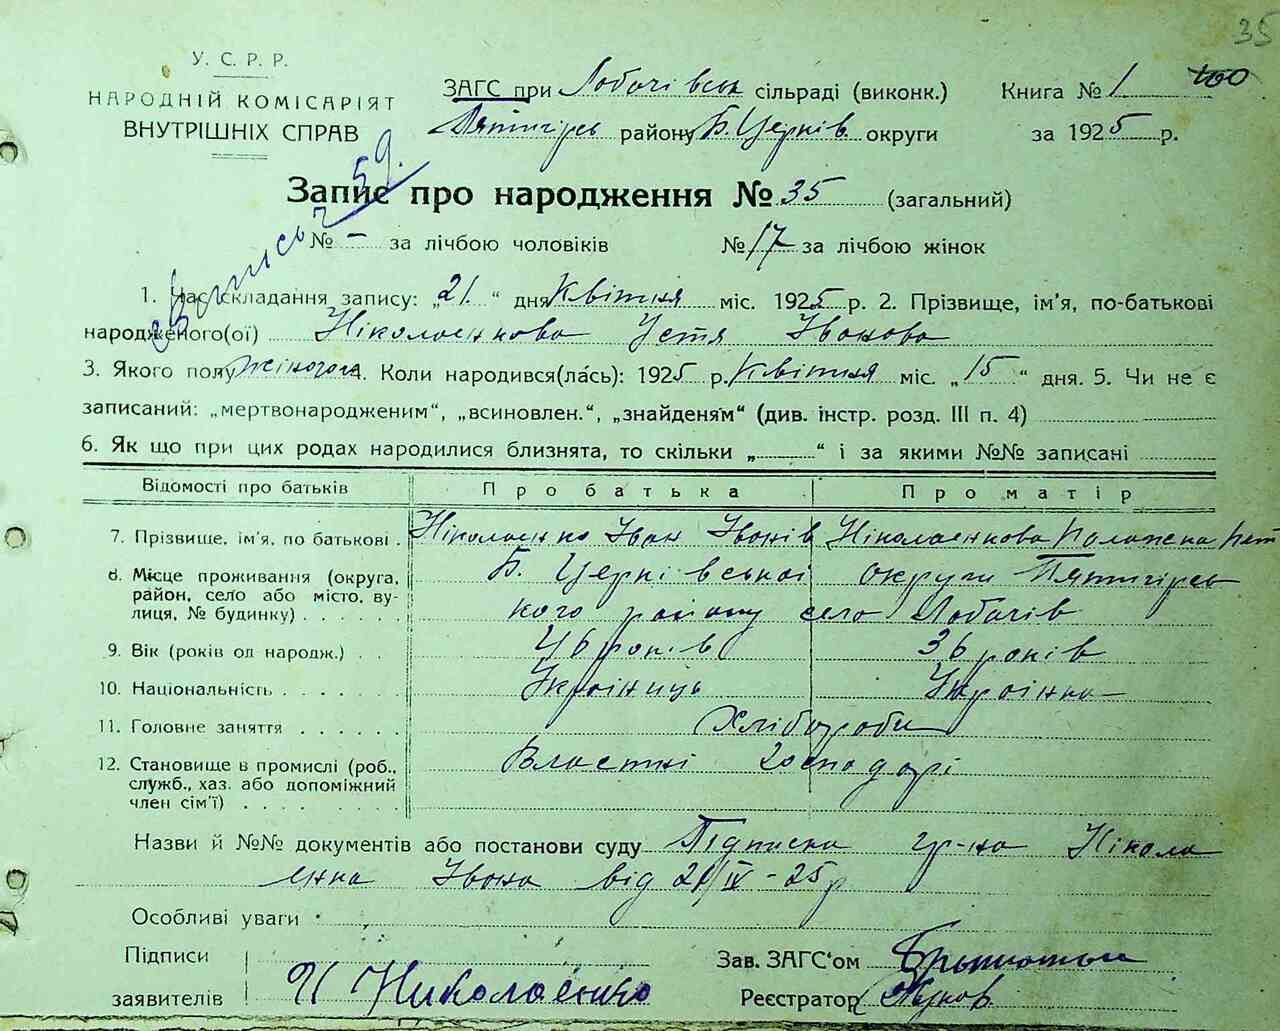 35
У. С. Р. Р.
НАРОДНІЙ КОМІСАРІЯТ
ВНУТРІШНІХ СПРАВ
ЗАГС при Лобачівськ сільраді (виконк.) Книга № 1 100
Пятигірсь району Б. Церків. округи за 1925 р.
59.
Запис про народження № 35 (загальний)
№ – за лічбою чоловіків № 17 за лічбою жінок
1. Час складання запису: „21." дня Квітня міс. 1925 р. 2. Прізвище, ім'я, по-батькові
народженого(ої) Ніколаєнкова Устя Іванова
3. Якого полу жіночого 4. Коли народився(лась): 1925 р. Квітня міс. „15" дня. 5. Чи не є
записаний: „мертвонародженим", „всиновлен.", „знайденям" (див. інстр. розд. III п. 4)
6. Як що при цих родах народилися близнята, то скільки „ " і за якими №№ записані
Відомості про батьків Про батька Про матір
7. Прізвище, ім'я, по батькові . Ніколаєнко Іван Іванів Ніколаєнкова Палажка
8. Місце проживання (округа, Б. Церківської округи Пятигірсь
район, село або місто, ву-
лиця, № будинку) . . . . . . кого району село Лобачів
9. Вік (років од народж.) . . 46 років 36 років
10. Національність . . . . . . Українець Українка
11. Головне заняття . . . . . . Хлібороби
12. Становище в промислі (роб., Властні господарі
служб., хаз. або допоміжний
член сім'ї) . . . . . . . .
Назви й №№ документів або постанови суду Підписка гр-на Нікола
єнка Івана від 21/IV – 25 р
Особливі уваги
Підписи Зав. ЗАГС'ом
заявителів И Николаенко Реєстратор